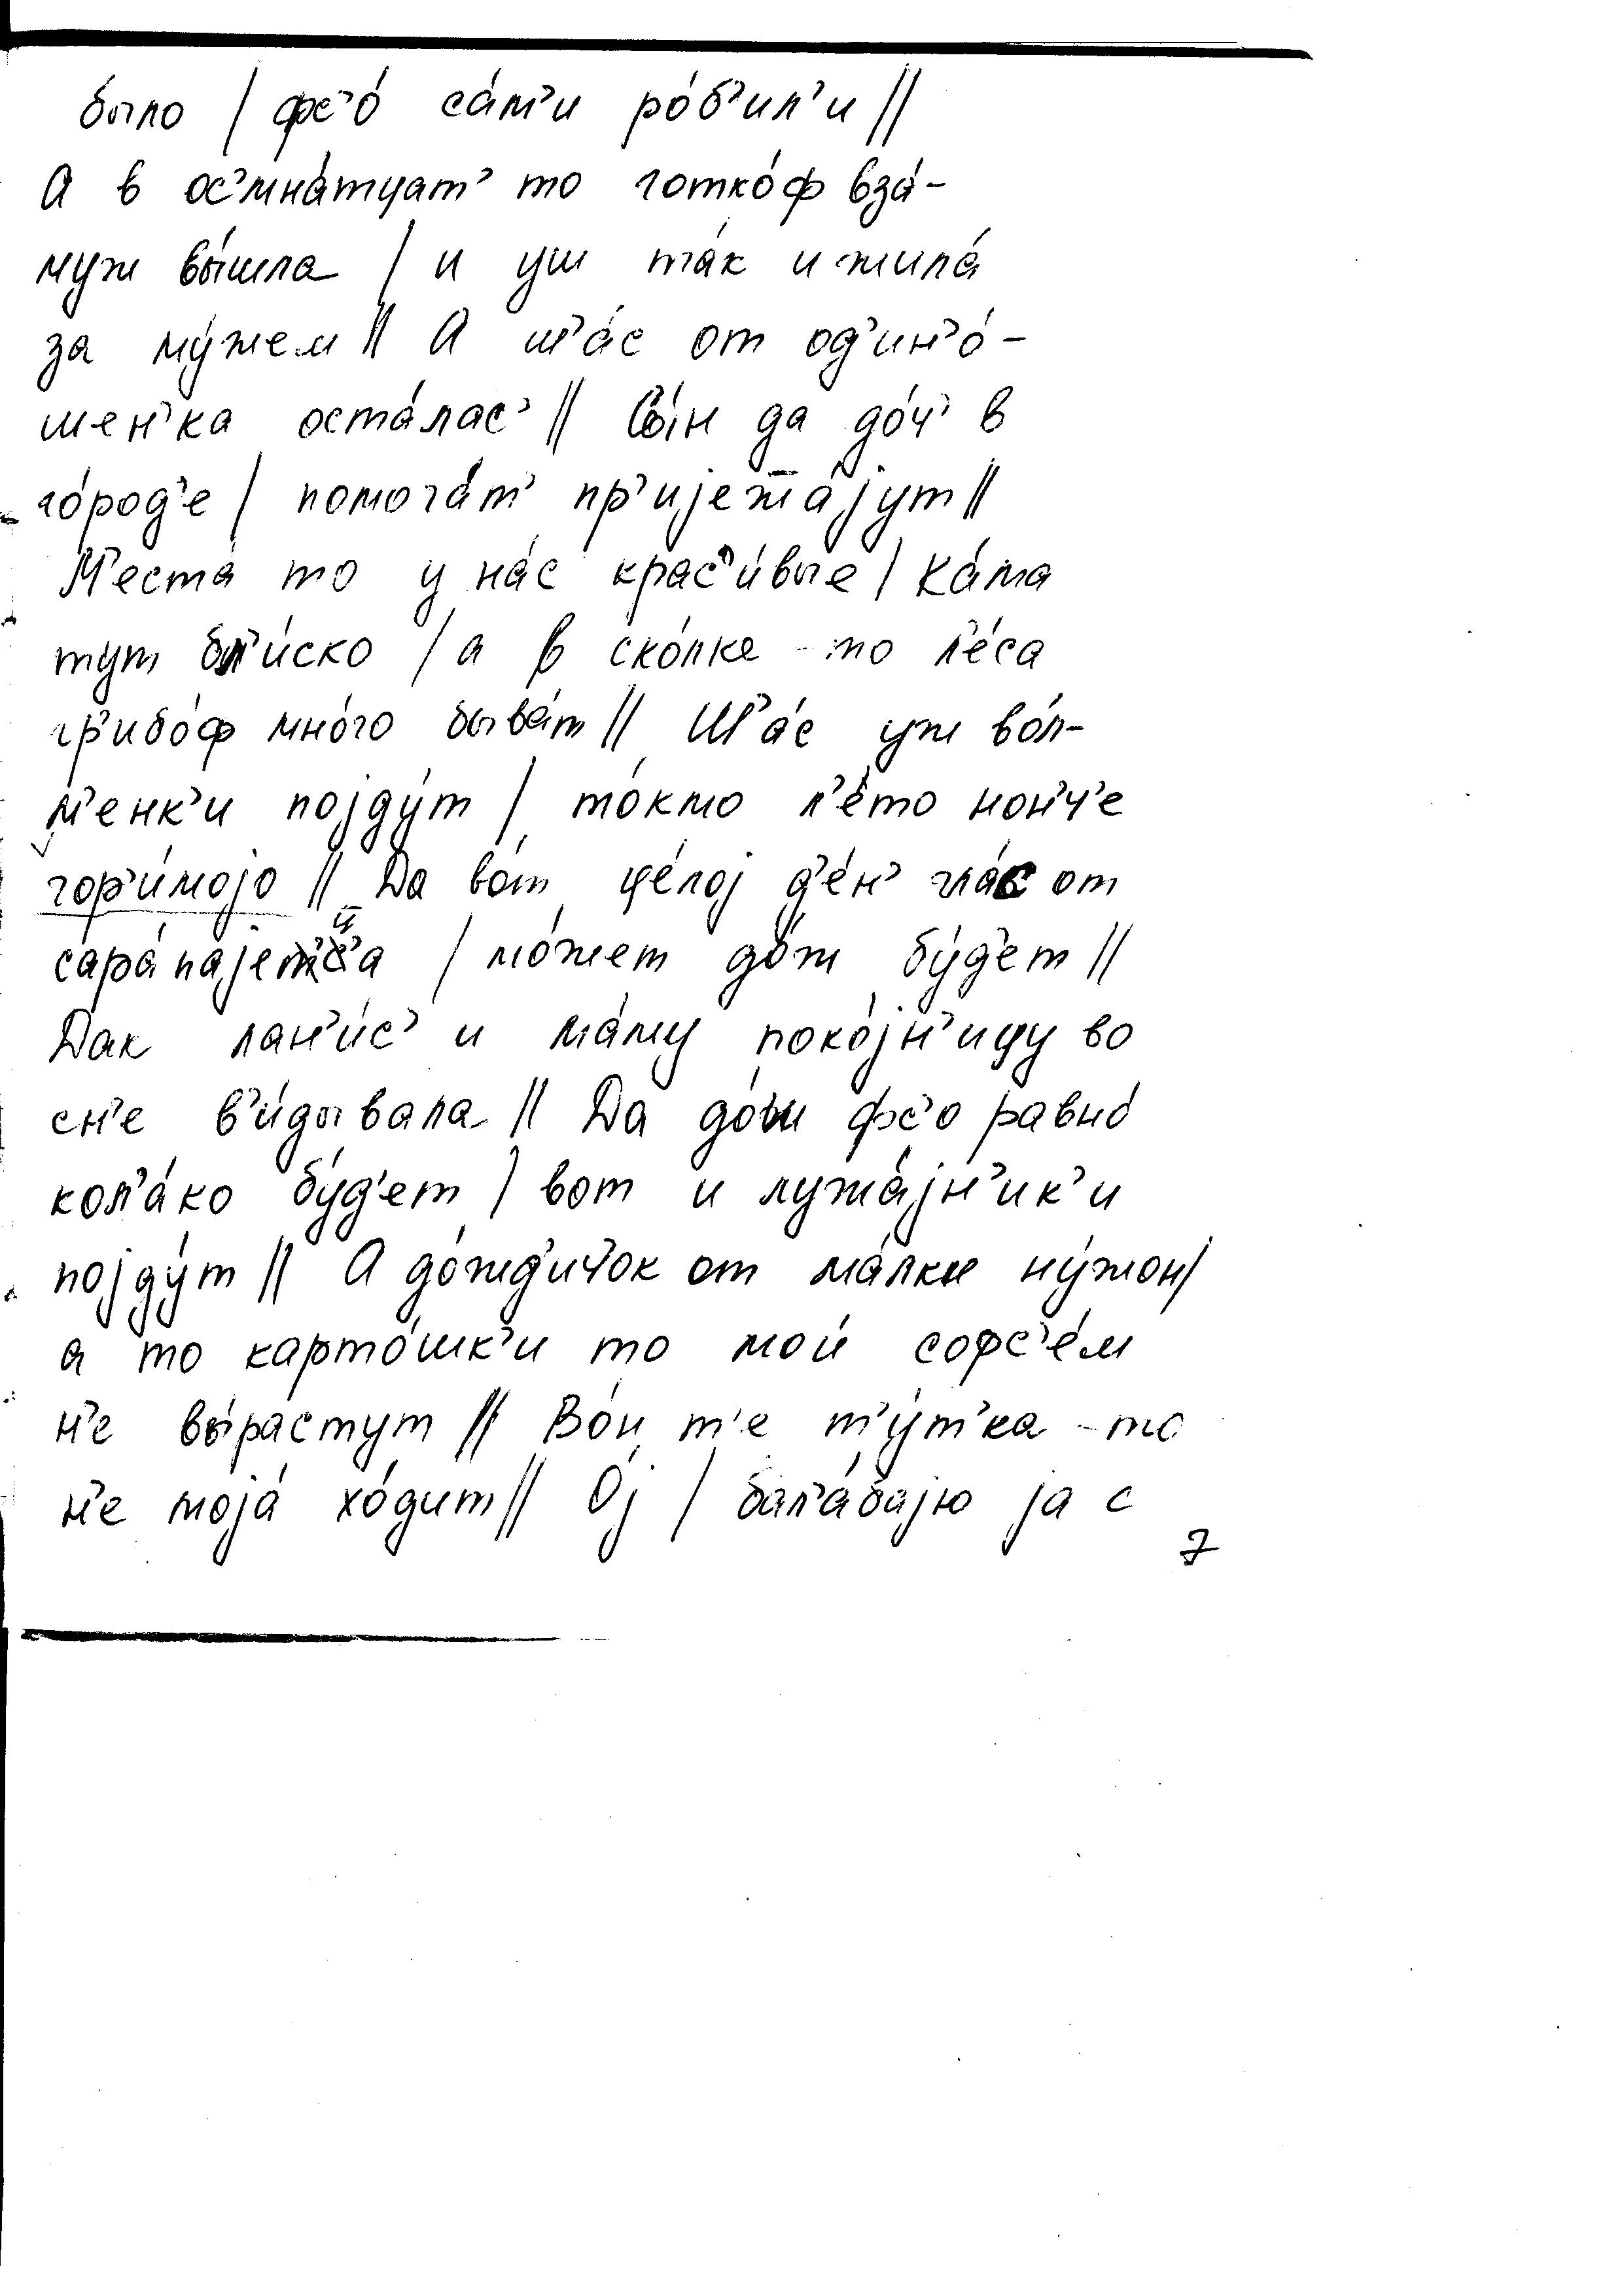 бы́ло / фс’о́ са́м’и ро́б’ил’и //
А в ос’мна́тцат’ то готко́ф вза́-
муж вы́шла / и уш та́к и жила́
за му́жем // А ш’а́с от од’ин’о́-
шен’ка оста́лас’ // Сы́н да до́ч’ в
го́род’е / помога́т’ пр’ијеж̅а́јут //
М’еста́ то у на́с крас’и́вые / Ка́ма
тут бл’и́ско / а в ско́лке-то л’е́са
гр’ибо́ф мно́го быва́т // Ш’а́с уж во́л-
м’енк’и појду́т / то́кмо л’е́то нон’ч’е
гор’и́мојо // Да во́т це́лој д’е́н’ гла́с от
сара́пајетца / мо́жет до́ж бу́д’ет //
Дак лан’и́с’ и ма́му поко́јн’ицу во
сн’е в’и́дывала // Да до́ш фс’о равно́
кол’а́ко бу́д’ет / вот и лужа́јн’ик’и
појду́т // А до́жд’ич’ок от ма́лке ну́жон /
а то карто́шк’и то мои́ софс’е́м
н’е вы́растут // Во́н т’е т’у́т’ка-то
н’е моја́ хо́дит // О́ј / бал’а́бају ја с
7